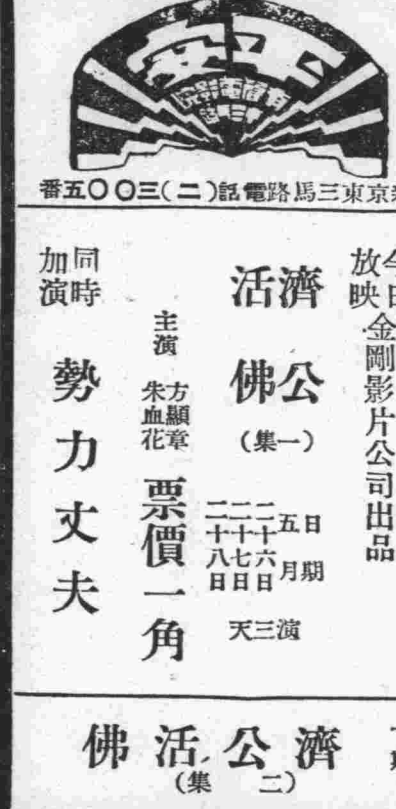 平安
電影院
京東三馬路電話(二)三〇〇五番
今日放映·金剛影片公司出品
濟公活佛
(一集)
日期
五月
二十六日
二十七日
二十八日
演三天
主演
方顯章
朱血花
票價一角
同時加演
勢力丈夫
濟公活佛
(二集)